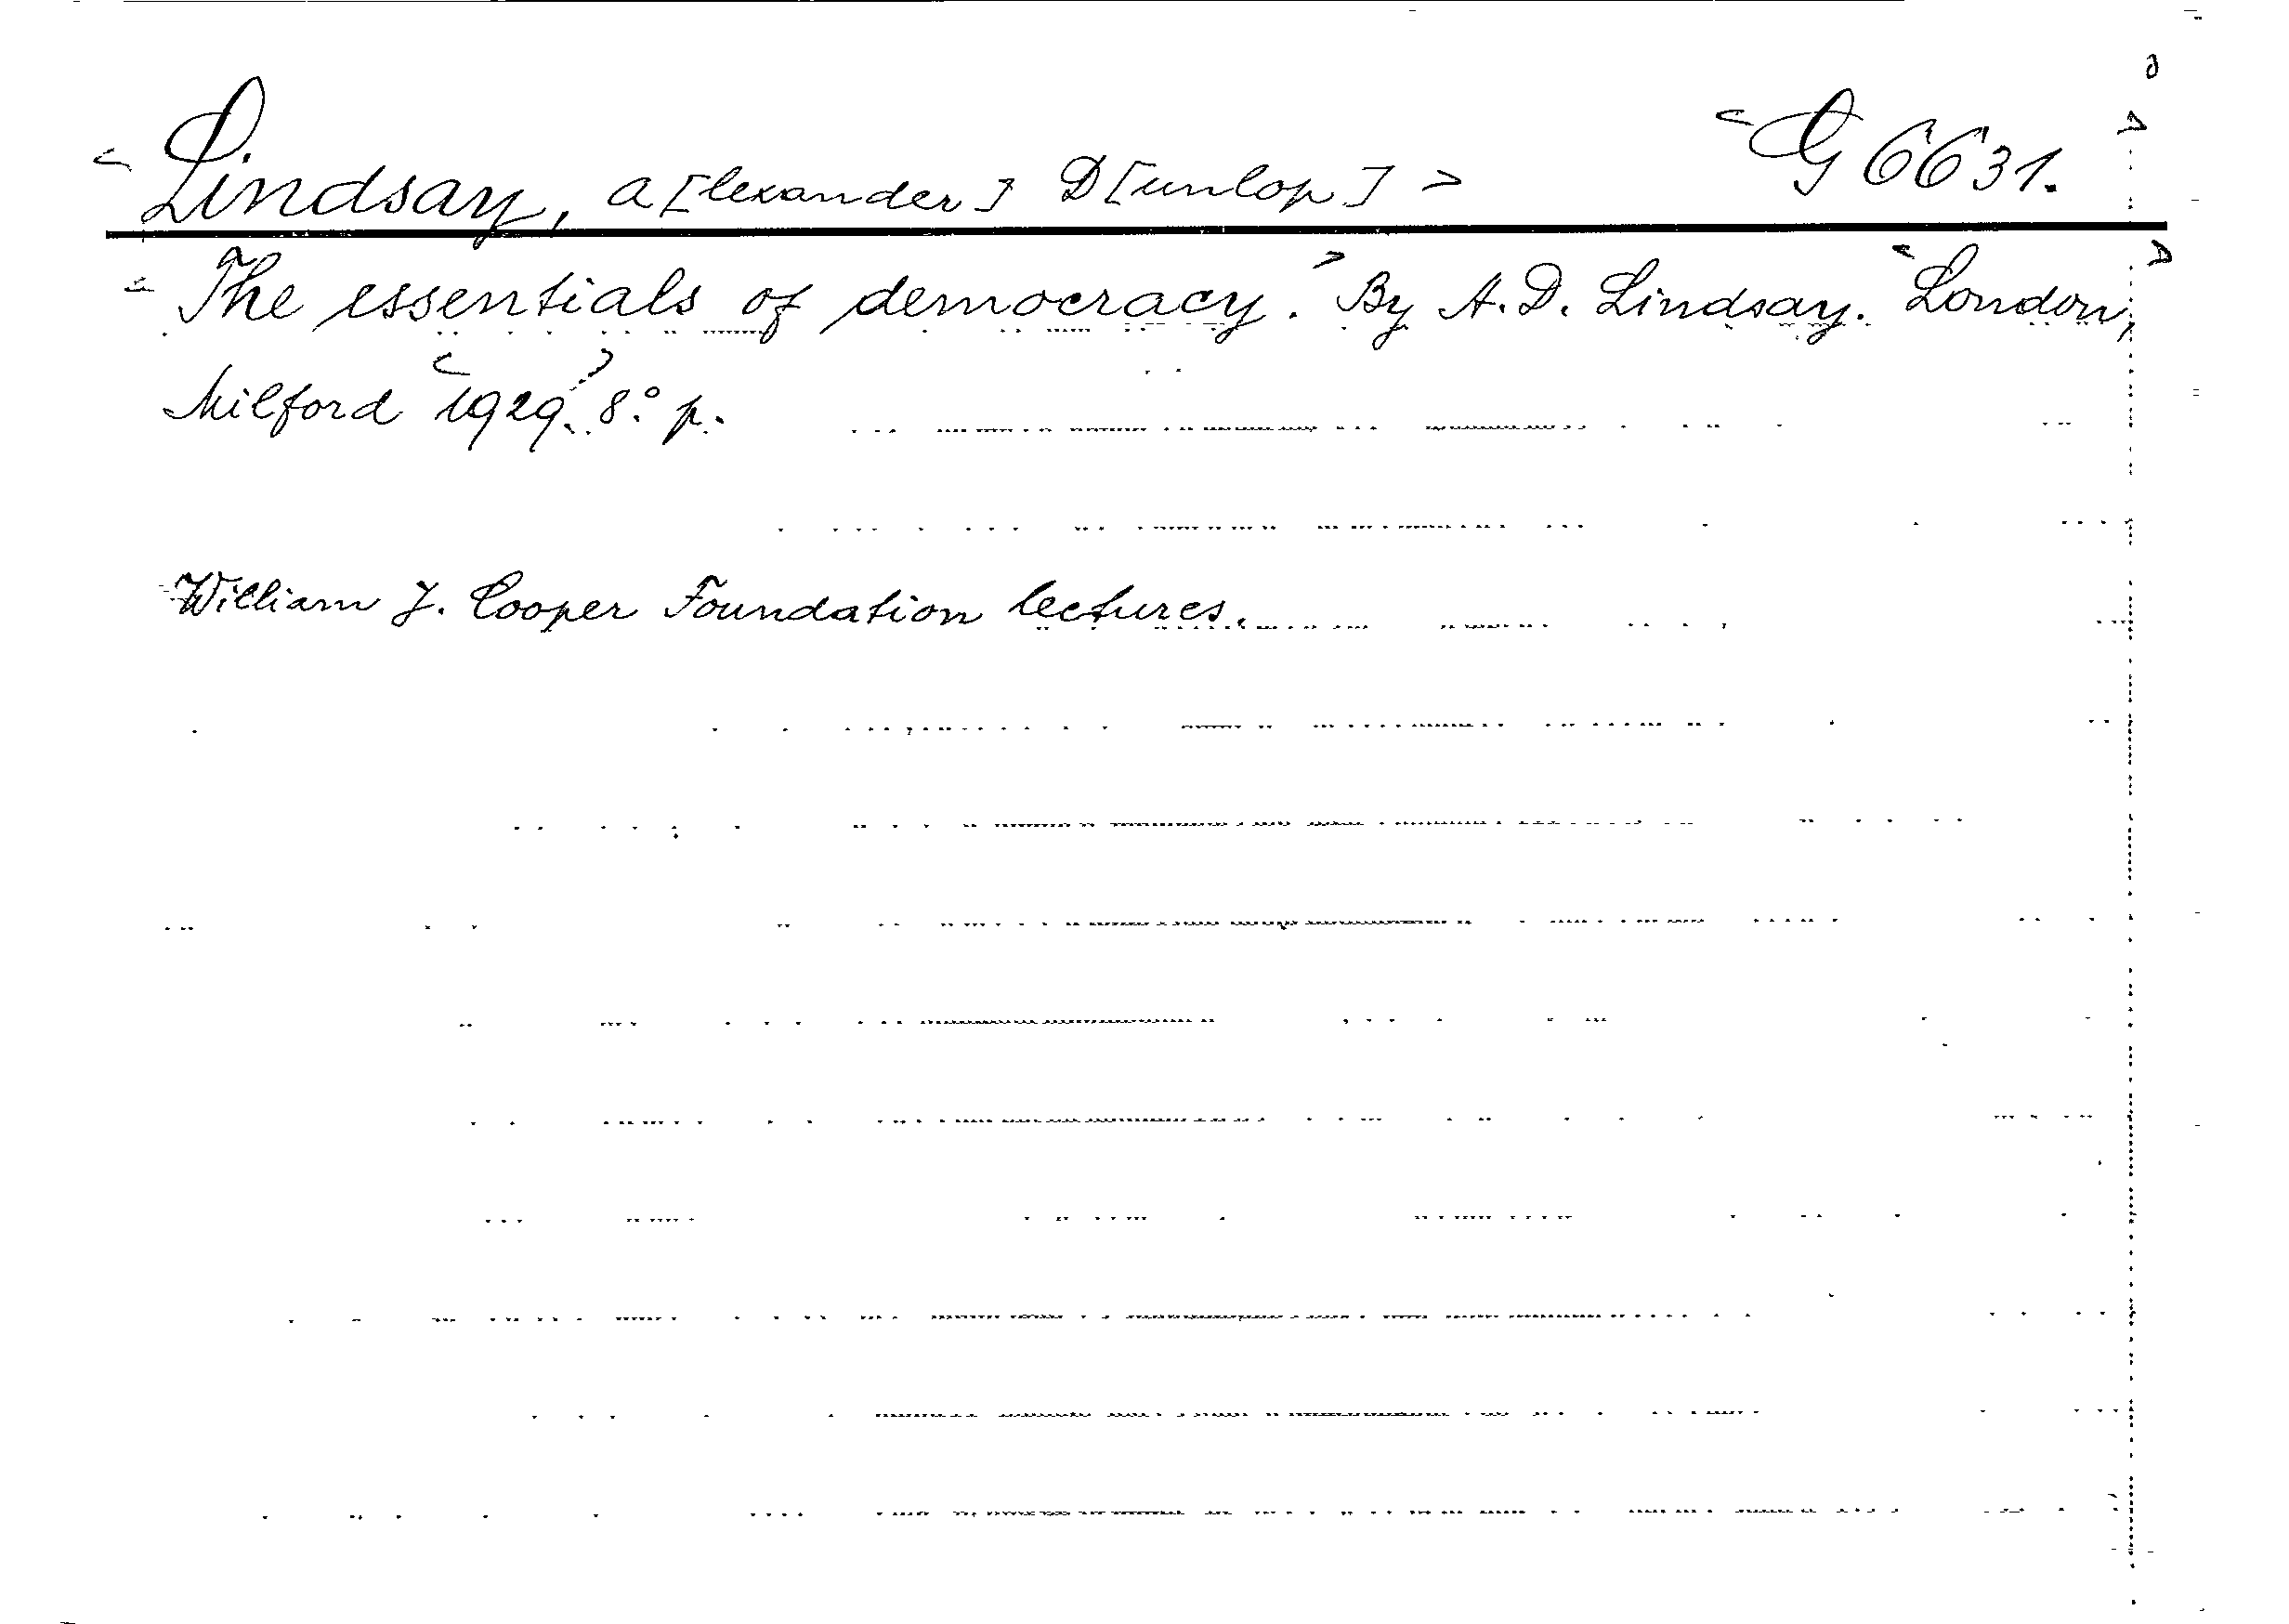 <Lindsay, A[lexander] D[unlop]> <G 6631.>
<The essentials of democracy.> By A. D. Lindsay. <London,>
Milford <1929.> 8.° p.
William J. Cooper Foundation lectures.